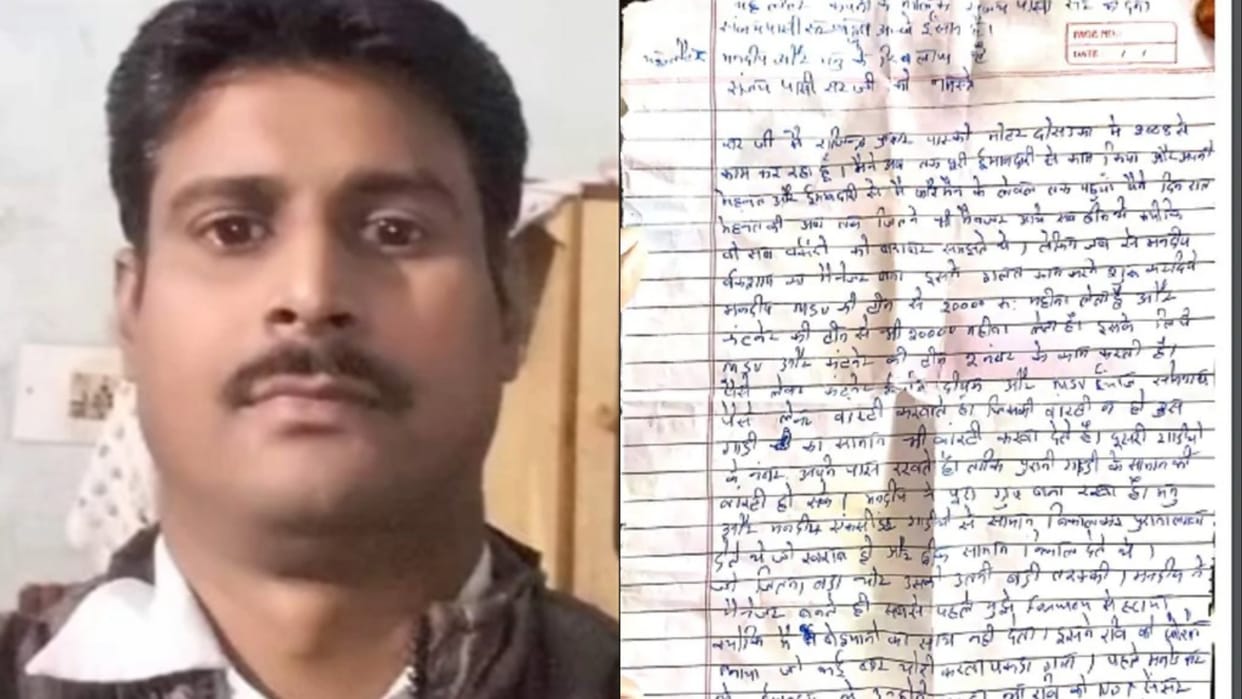 यह लेटर कम्पनी के मालिक संजय पासी सर को देना
संजय पासी सर बहुत अच्छे इंसान है।
PAGE NO.:
DATE: / /
मनदीप और मनु के खिलाफ है
संजय पासी सर जी को नमस्ते
सर जी मै कुमार पास्को मोटर दोसडका मे से
काम कर रहा हूँ। मैने अब तक पूरी ईमानदारी से काम किया और अपनी
मेहनत और ईमानदारी से मै फोरमैन के लेवल तक पहुंचा मैने दिन रात
मेहनत की अब तक जितने भी मैनेजर आये सब ठीक थे क्योकि
वो सब वर्करो को बराबर समझते थे। लेकिन जब से मनदीप
वर्कशाप का मैनेजर बना इसने गलत काम करने शुरू कर दिये
मनदीप MSV की टीम से 20000 रू: महीना लेता है और
कंटनेर की टीम से भी 20000 महीना लेता है। इसके लिये
MSV और कंटनेर की टीम 2 नंबर के काम करती है।
पैसे लेकर कंटनेर इंचार्ज दीपक और MSV इंचार्ज
पैसे लेकर वारंटी करवाते है। जिसकी वारंटी न हो उस
गाडी का सामान भी वारंटी करवा देते है। दूसरी गाडीयो
के नंबर अपने पास रखते है। ताकि पुरानी गाडी के सामान की
वारंटी हो सके। मनदीप ने पूरा ग्रुप बना रखा है। मनु
और मनदीप एक्सीडेंट गाडीयो से सामान निकालकर पुराना
देते थे जो खराब हो और ठीक सामान निकाल लेते थे।
जो जितना बडा चोर उसकी उतनी बडी तरक्की। मनदीप ने
मैनेजर बनते ही सबसे पहले मुझे से हटाया
क्योकि मै बेईमानो का साथ नही देता। इसने रवि को
लगाया जो कई बार चोरी करता पकडा गया। पहले मनेजर